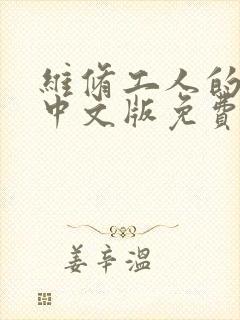 維脩工人的
中文版免費
姜辛溫